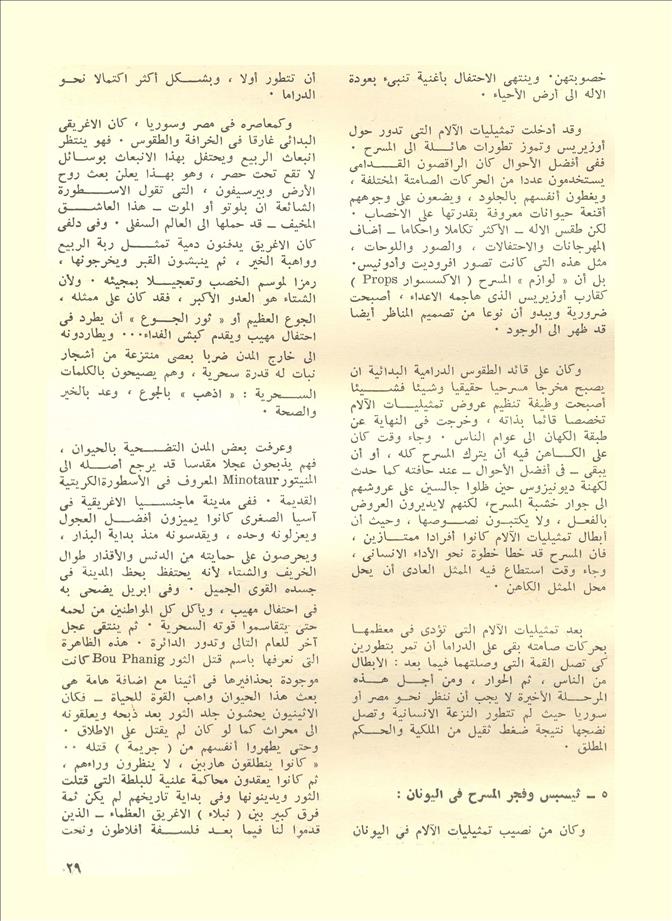 خصوبتهن٠ وينتهى الاحتفال بأغنية تنبىء بعودة
الاله الى أرض الأحياء ٠
وقد أدخلت تمثيليات الآلام التى تدور حول
أوزيريس وتموز تطورات هائلة الى المسرح ٠
ففى أفضل الأحوال كان الراقصون القدامى
يستخدمون عددا من الحركات الصامتة المختلفة ،
ويغطون أنفسهم بالجلود ، ويضعون على وجوههم
أقنعة حيوانات معروفة بقدرتها على الاخصاب ٠
لكن طقس الاله – الأكثر تكاملا واحكاما – أضاف
المهرجانات والاحتفالات ، والصور واللوحات ،
مثل هذه التى كانت تصور افروديت وأدونيس٠
بل أن « لوازم » المسرح ( الاكسسوار Props )
كقارب أوزيريس الذى هاجمه الاعداء ، أصبحت
ضرورية ويبدو أن نوعا من تصميم المناظر أيضا
قد ظهر الى الوجود ٠
وكان على قائد الطقوس الدرامية البدائية ان
يصبح مخرجا مسرحيا حقيقيا وشيئا فشيئا
أصبحت وظيفة تنظيم عروض تمثيليات الآلام
تخصصا قائما بذاته ، وخرجت فى النهاية عن
طبقة الكهان الى عوام الناس ٠ وجاء وقت كان
على الكاهن فيه أن يترك المسرح كله ، أو أن
يبقى – فى أفضل الأحوال – عند حافته كما حدث
لكهنة ديونيزوس حين ظلوا جالسين على عروشهم
الى جوار خشبة المسرح، لكنهم لايديرون العروض
بالفعل ، ولا يكتبون نصوصها ، وحيث أن
أبطال تمثيليات الآلام كانوا أفرادا ممتازين ،
فان المسرح قد خطا خطوة نحو الأداء الانسانى ،
وجاء وقت استطاع فيه الممثل العادى أن يحل
محل الممثل الكاهن ٠
بعد تمثيليات الآلام التى تؤدى فى معظمها
بحركات صامته بقى على الدراما أن تمر بتطورين
كى تصل القمة التى وصلتهما فيما بعد : الأبطال
من الناس ، ثم الحوار ، ومن أجل هذه
المرحلة الأخيرة لا يجب أن ننظر نحو مصر أو
سوريا حيث لم تتطور النزعة الانسانية وتصل
نضجها نتيجة ضغط ثقيل من الملكية والحكم
المطلق ٠
٥ – ثيسبس وفجر المسرح فى اليونان :
وكان من نصيب تمثيليات الآلام فى اليونان
أن تتطور أولا ، وبشكل أكثر اكتمالا نحو
الدراما ٠
وكمعاصره فى مصر وسوريا ، كان الاغريقى
البدائى غارقا فى الخرافة والطقوس ٠ فهو ينتظر
انبعاث الربيع ويحتفل بهذا الانبعاث بوسائل
لا تقع تحت حصر ، وهو بهذا يعلن بعث روح
الأرض وبيرسيفون ، التى تقول الاسطورة
الشائعة ان بلوتو أو الموت – هذا العاشق
المخيف – قد حملها الى العالم السفلى ٠ وفى دلفى
كان الاغريق يدفنون دمية تمثل ربة الربيع
وواهبة الخير ، ثم ينبشون القبر ويخرجونها ،
رمزا لموسم الخصب وتعجيلا بمجيئه ٠ ولأن
الشتاء هو العدو الأكبر ، فقد كان على ممثله ،
الجوع العظيم أو « ثور الجوع » أن يطرد فى
احتفال مهيب ويقدم كبش الفداء٠٠٠ ويطاردونه
الى خارج المدن ضربا بعصى منتزعة من أشجار
نبات له قدرة سحرية ، وهم يصيحون بالكلمات
السحرية : « اذهب » بالجوع ، وعد بالخير
والصحة ٠
وعرفت بعض المدن التضحية بالحيوان ،
فهم يذبحون عجلا مقدسا قد يرجع أصله الى
المنيتور Minotaur المعروف فى الأسطورة الكريتية
القديمة ٠ ففى مدينة ماجنسيا الاغريقية فى
آسيا الصغرى كانوا يميزون أفضل العجول
ويعزلونه وحده ، ويقدسونه منذ بداية البذار ،
ويحرصون على حمايته من الدنس والأقذار طوال
الخريف والشتاء لأنه يحتفظ بحظ المدينة فى
جسده القوى الجميل ٠ وفى ابريل يضحى به
فى احتفال مهيب ، ويأكل كل المواطنين من لحمه
حتى يتقاسموا قوته السحرية ٠ ثم ينتقى عجل
آخر للعام التالى وتدور الدائرة ٠ هذه الظاهرة
التى نعرفها باسم قتل الثور Bou Phanig كانت
موجودة بحذافيرها فى أثينا مع اضافة هامة هى
بعث هذا الحيوان واهب القوة للحياة – فكان
الاثينيون يحشون جلد الثور بعد ذبحه ويعلقونه
الى محراث كما لو كان لم يقتل على الاطلاق ٠
وحتى يطهروا أنفسهم من ( جريمة ) قتله ٠٠
« كانوا ينطلقون هاربين ، لا ينظرون وراءهم ،
ثم كانوا يعقدون محاكمة علنية للبلطة التى قتلت
الثور ويدينونها وفى بداية تاريخهم لم يكن ثمة
فرق كبير بين ( نبلاء ) الاغريق العظماء – الذين
قدموا لنا فيما بعد فلسفة أفلاطون ونحت
٢٩